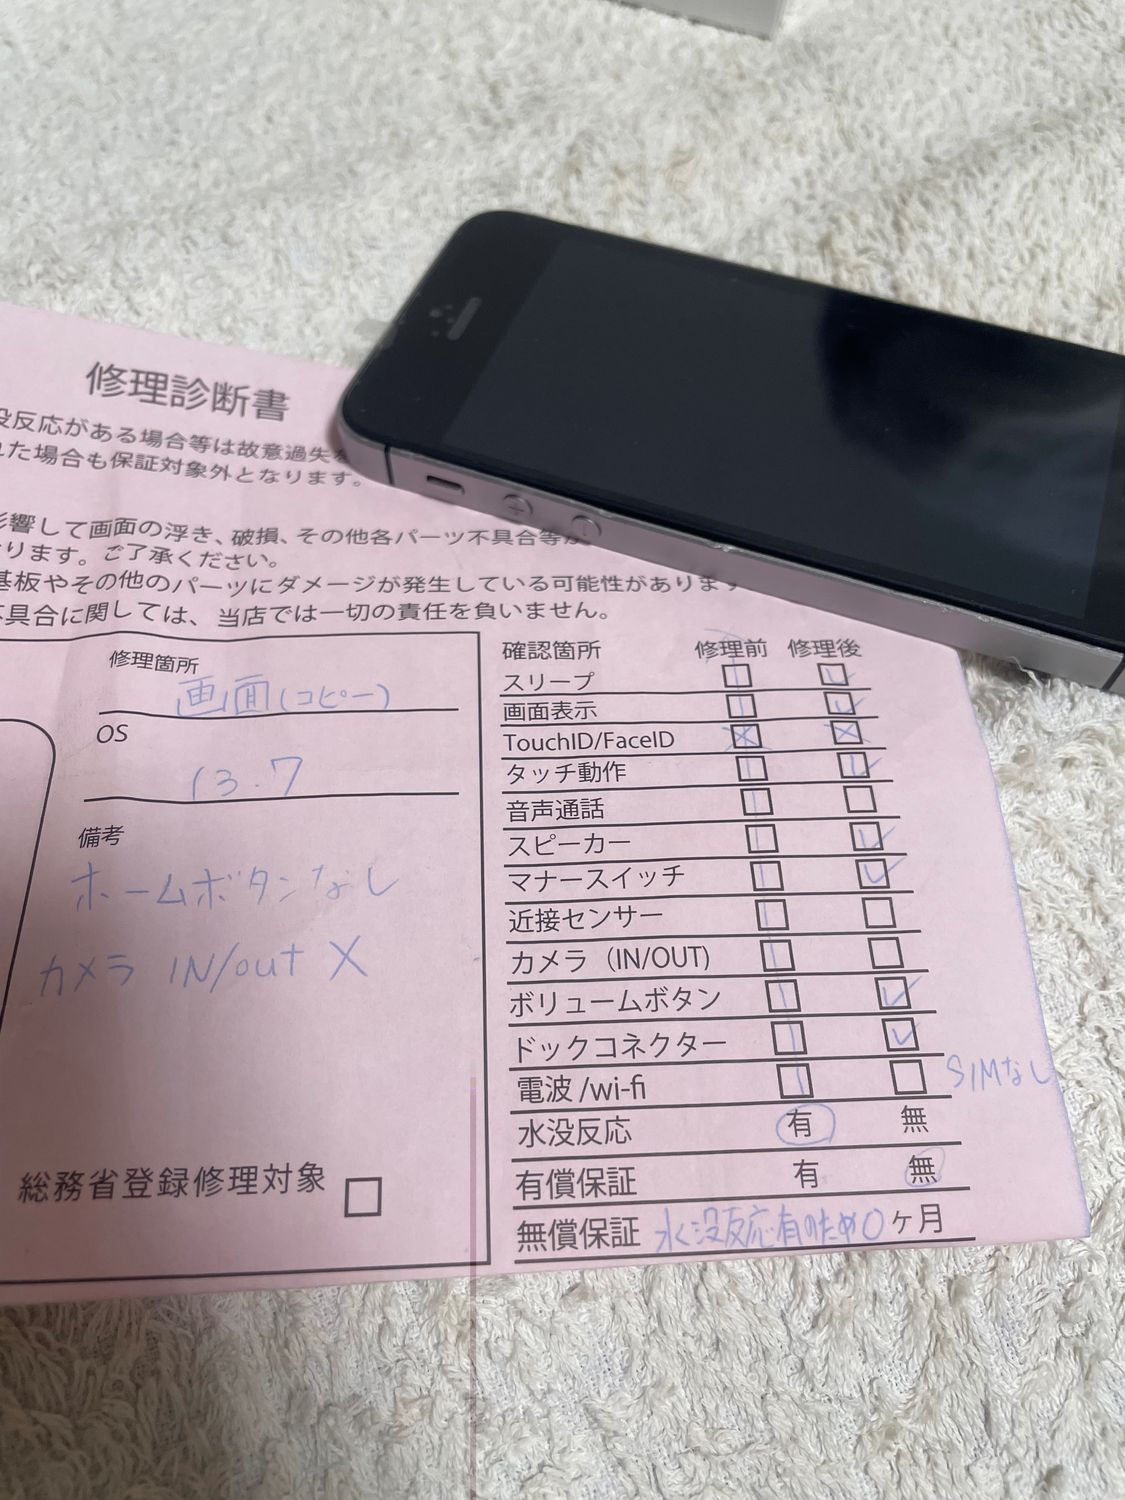 修理診断書
没反応がある場合等は故意過失
れた場合も保証対象外となります。
影響して画面の浮き、破損、その他各パーツ不具合等が
ります。ご了承ください。
基板やその他のパーツにダメージが発生している可能性があります
不具合に関しては、当店では一切の責任を負いません。
修理箇所
画面(コピー)
OS
13.7
備考
ホームボタンなし
カメラ IN/out X
総務省登録修理対象
確認箇所 修理前 修理後
スリープ
画面表示
TouchID/FaceID
タッチ動作
音声通話
スピーカー
マナースイッチ
近接センサー
カメラ(IN/OUT)
ボリュームボタン
ドックコネクター
電波/wi-fi SIMなし
水没反応 有 無
有償保証 有 無
無償保証 水没反応有のため0ヶ月